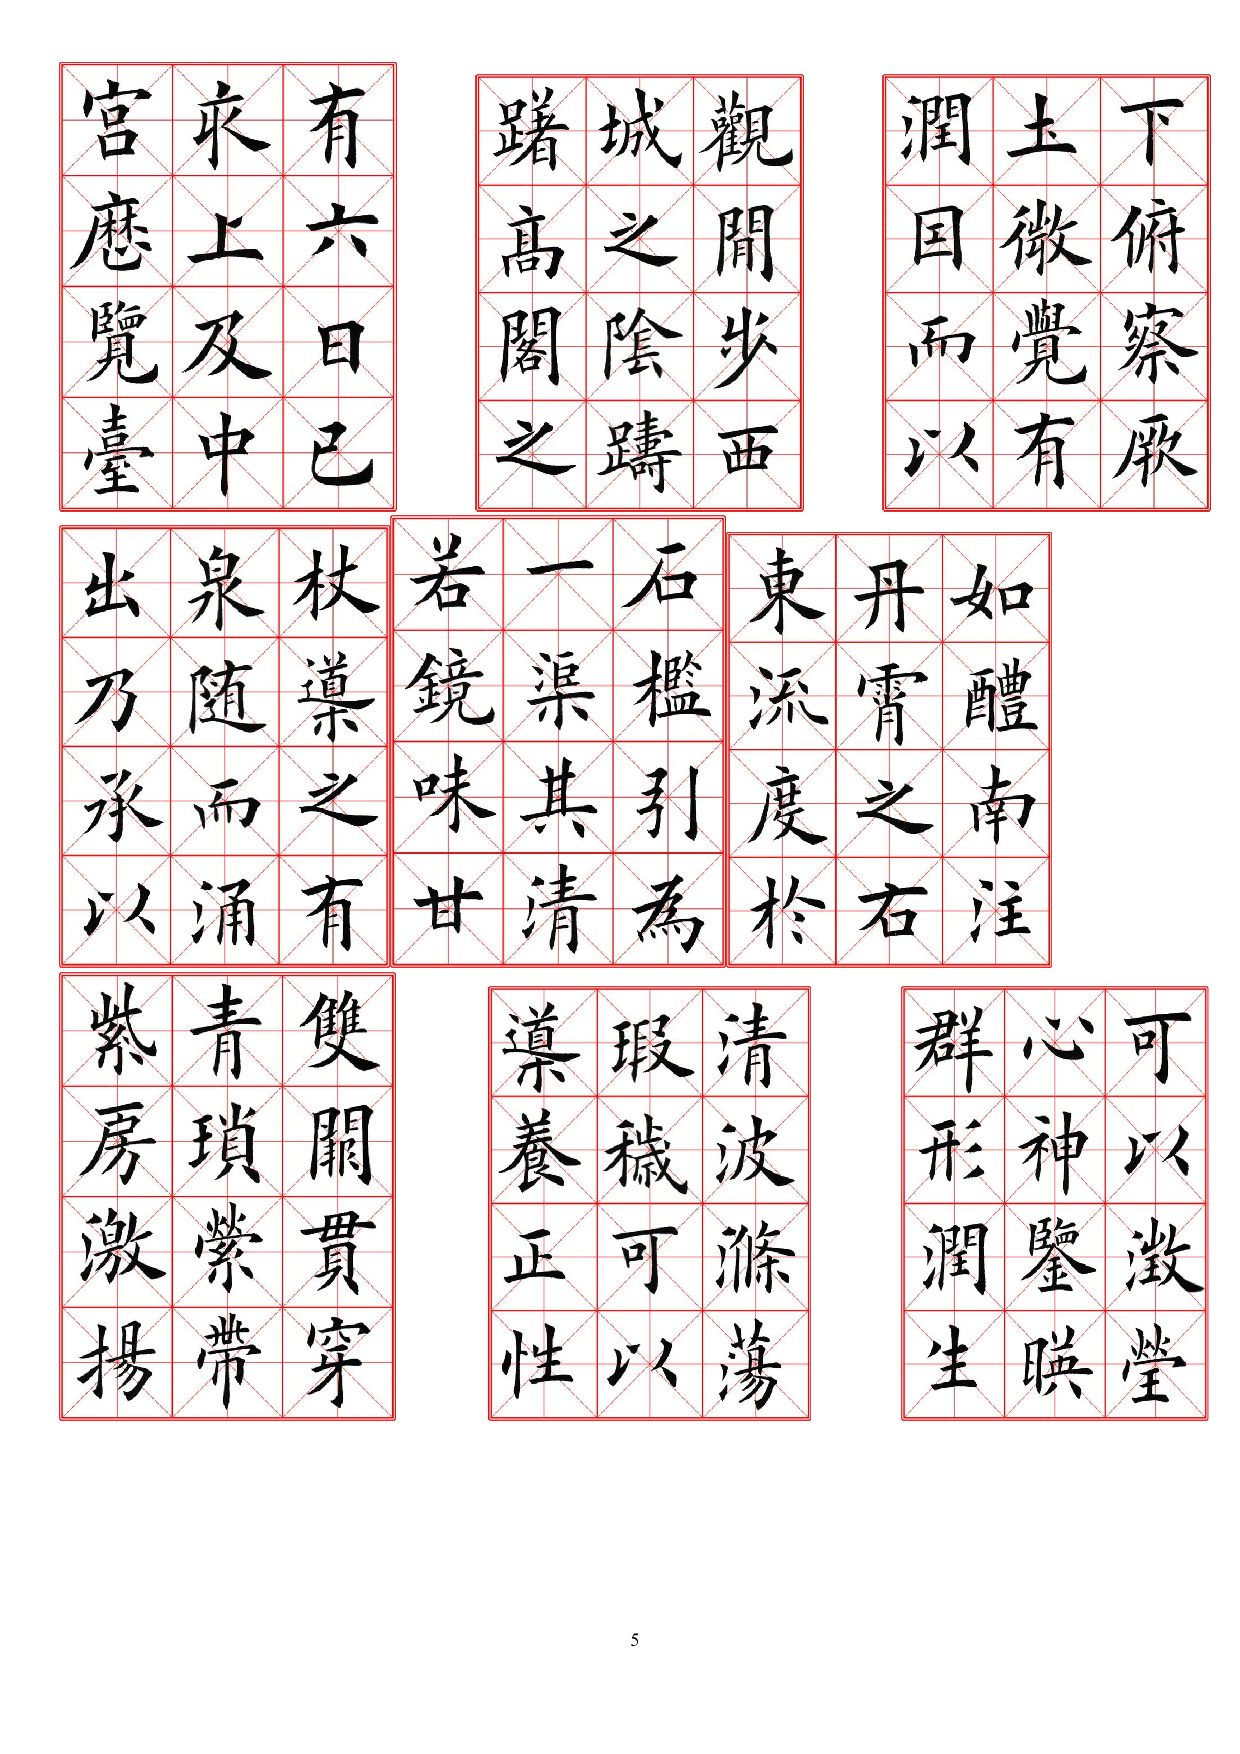 有六日已
亥上及中
宮歷覽臺
觀閒步西
城之陰躊
躇髙閣之
下俯察厥
土微覺有
潤因而以
杖導之有
泉随而涌
出乃承以
石檻引為
一渠其清
若鏡味甘
如醴南注
丹霄之右
東流度於
雙闕貫穿
青瑣縈帶
紫房激揚
清波滌蕩
瑕穢可以
導養正性
可以澂瑩
心神鑒暎
群形潤生
5